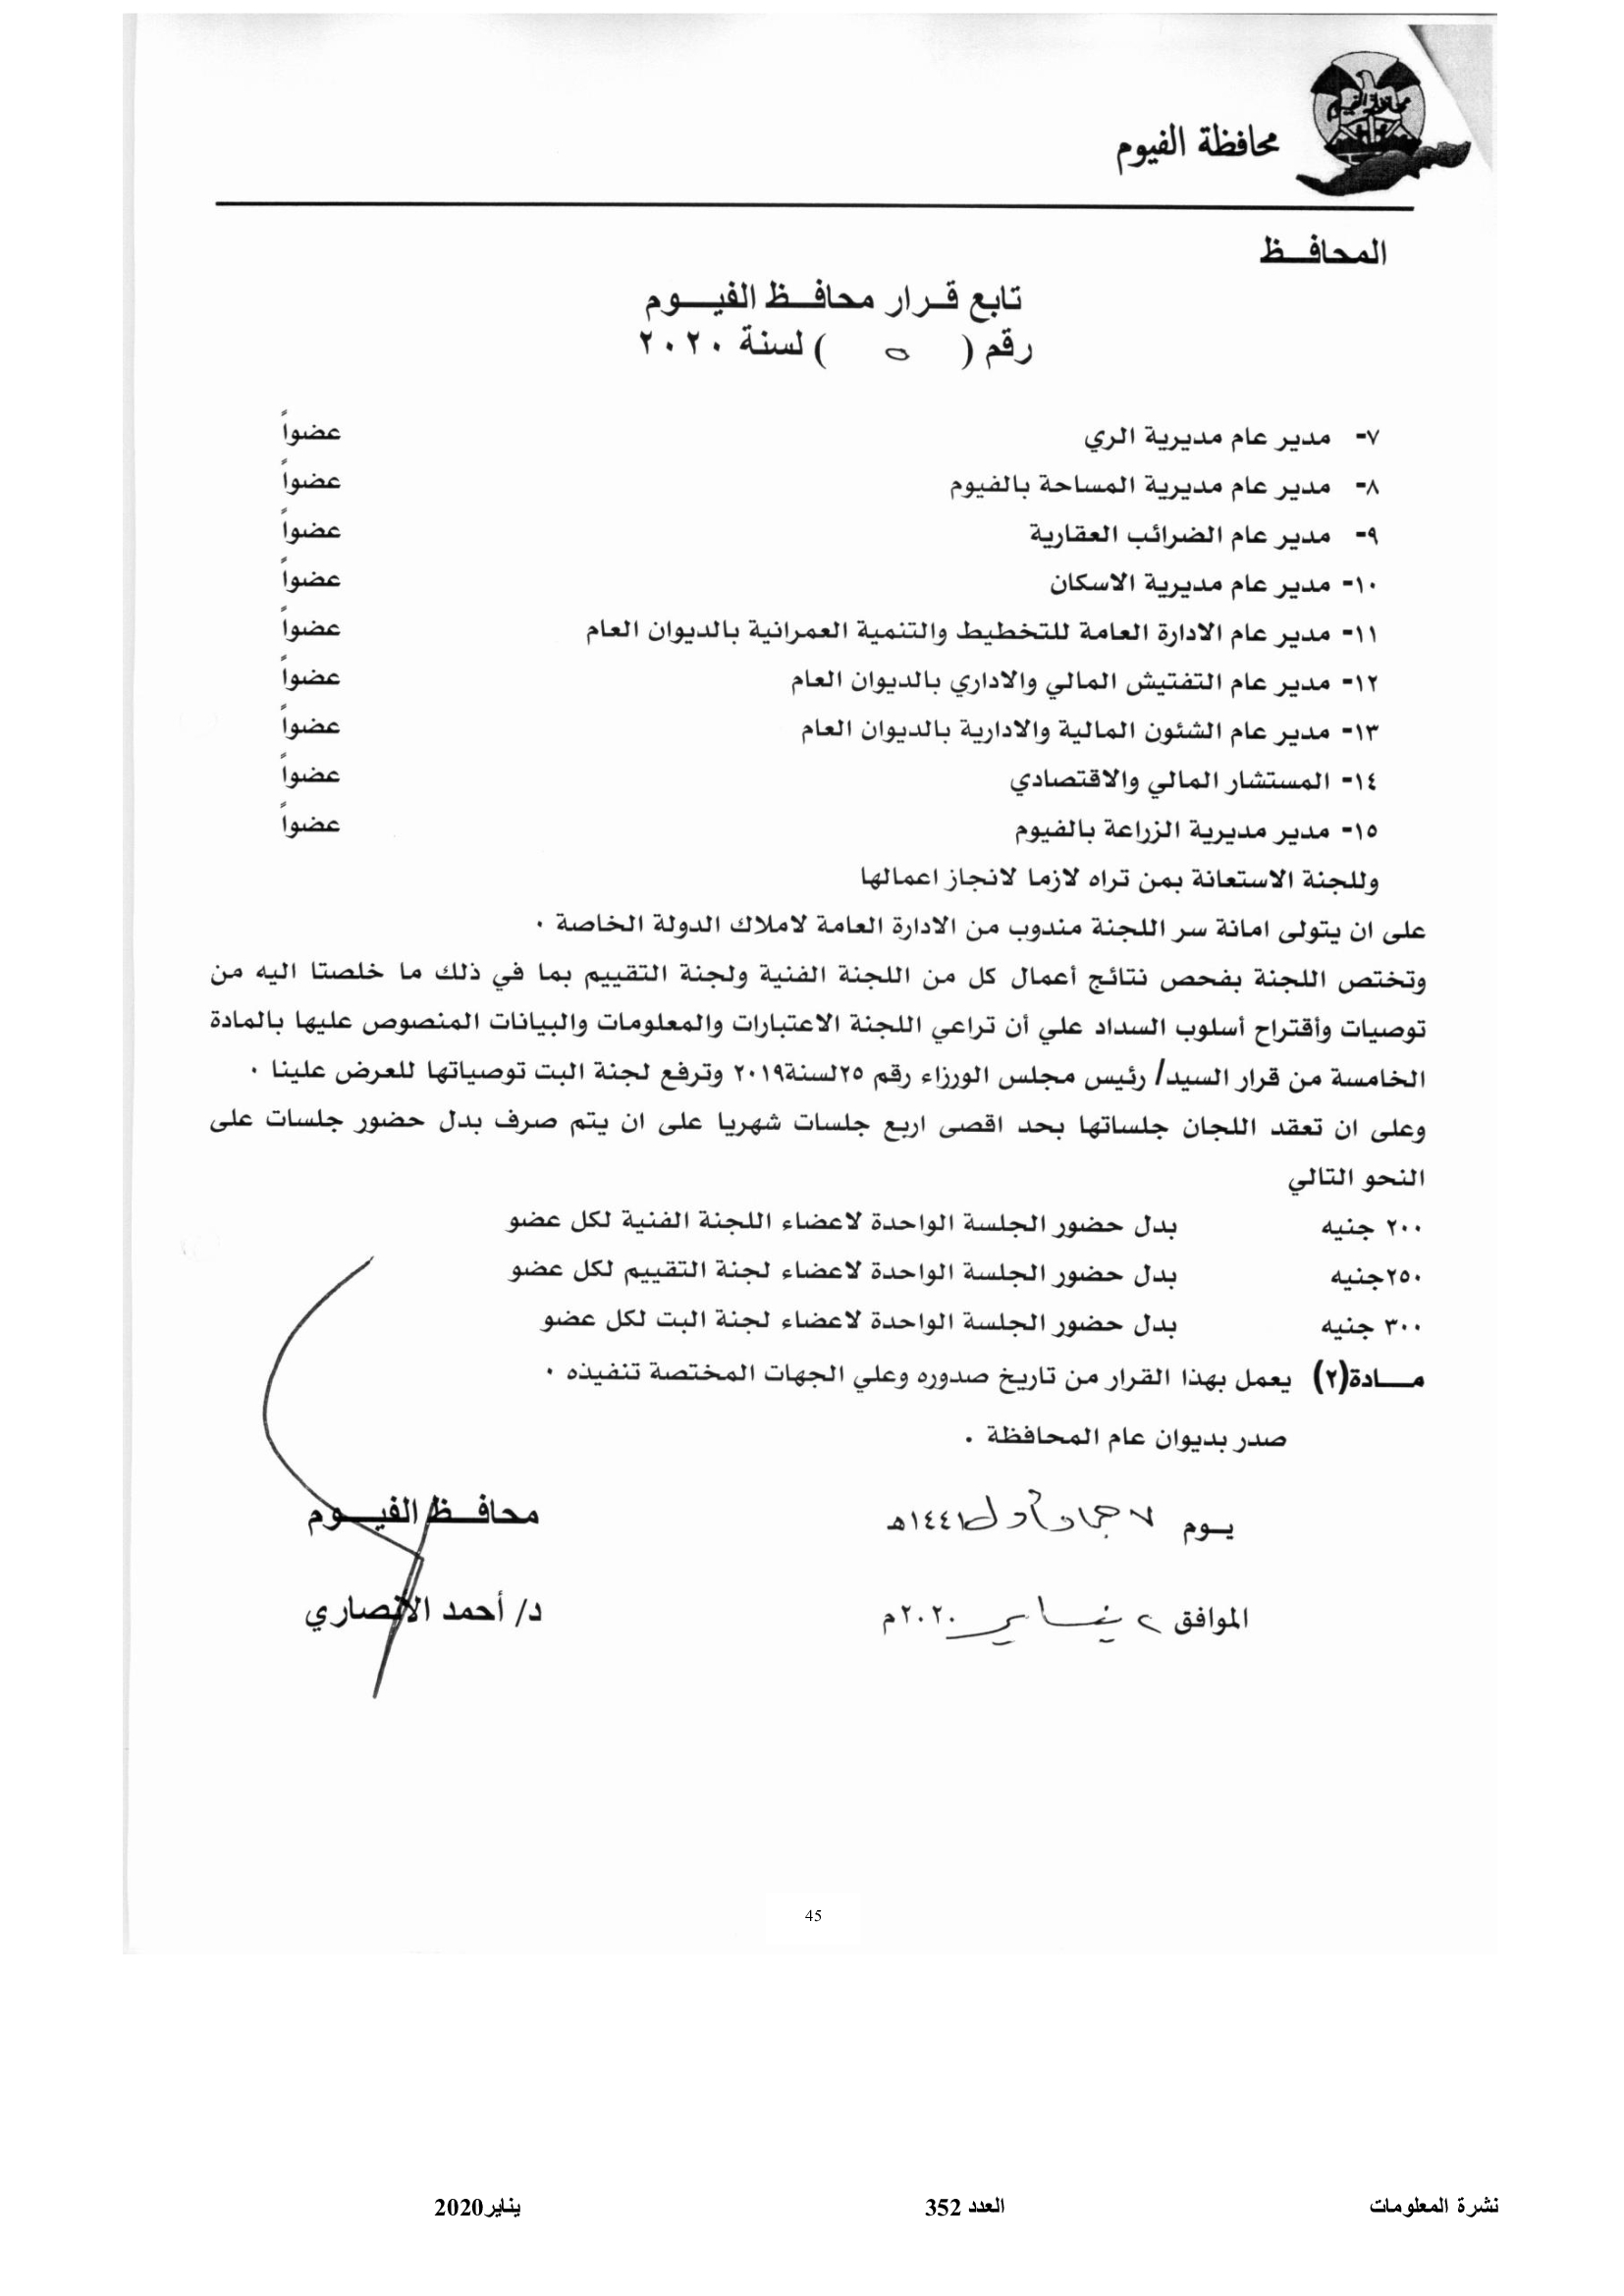 محافظة الفيوم
محافظة الفيوم
المحافــظ
تابع قـرار محافــظ الفيـــوم
رقم ( ٥ ) لسنة ٢٠٢٠
٧- مدير عام مديرية الري عضواً
٨- مدير عام مديرية المساحة بالفيوم عضواً
٩- مدير عام الضرائب العقارية عضواً
١٠- مدير عام مديرية الاسكان عضواً
١١- مدير عام الادارة العامة للتخطيط والتنمية العمرانية بالديوان العام عضواً
١٢- مدير عام التفتيش المالي والاداري بالديوان العام عضواً
١٣- مدير عام الشئون المالية والادارية بالديوان العام عضواً
١٤- المستشار المالي والاقتصادي عضواً
١٥- مدير مديرية الزراعة بالفيوم عضواً
وللجنة الاستعانة بمن تراه لازما لانجاز اعمالها
على ان يتولى امانة سر اللجنة مندوب من الادارة العامة لاملاك الدولة الخاصة .
وتختص اللجنة بفحص نتائج أعمال كل من اللجنة الفنية ولجنة التقييم بما في ذلك ما خلصتا اليه من
توصيات وأقتراح أسلوب السداد علي أن تراعي اللجنة الاعتبارات والمعلومات والبيانات المنصوص عليها بالمادة
الخامسة من قرار السيد/ رئيس مجلس الورزاء رقم ٢٥لسنة٢٠١٩ وترفع لجنة البت توصياتها للعرض علينا .
وعلى ان تعقد اللجان جلساتها بحد اقصى اربع جلسات شهريا على ان يتم صرف بدل حضور جلسات على
النحو التالي
٢٠٠ جنيه بدل حضور الجلسة الواحدة لاعضاء اللجنة الفنية لكل عضو
٢٥٠جنيه بدل حضور الجلسة الواحدة لاعضاء لجنة التقييم لكل عضو
٣٠٠ جنيه بدل حضور الجلسة الواحدة لاعضاء لجنة البت لكل عضو
مـــادة(٢) يعمل بهذا القرار من تاريخ صدوره وعلي الجهات المختصة تنفيذه .
صدر بديوان عام المحافظة .
يـوم ٧ جماد أول ١٤٤١هـ محافــظ الفيـــوم
الموافق ٢ يناير ٢٠٢٠م د/ أحمد الأنصاري
45
نشرة المعلومات العدد 352 يناير2020